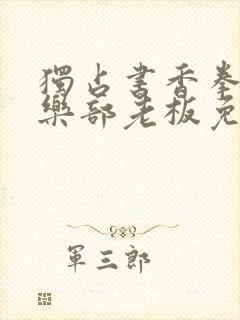 獨占書香拳
樂部老板免
軍三郎